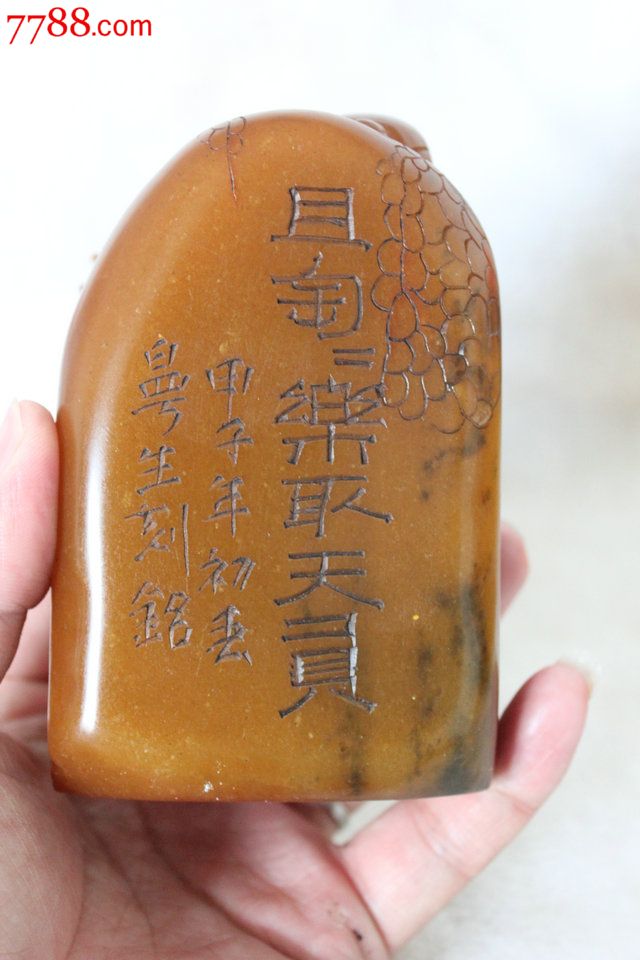 7788.com
且匋〻樂取天員
甲子年初春
皋生刻銘